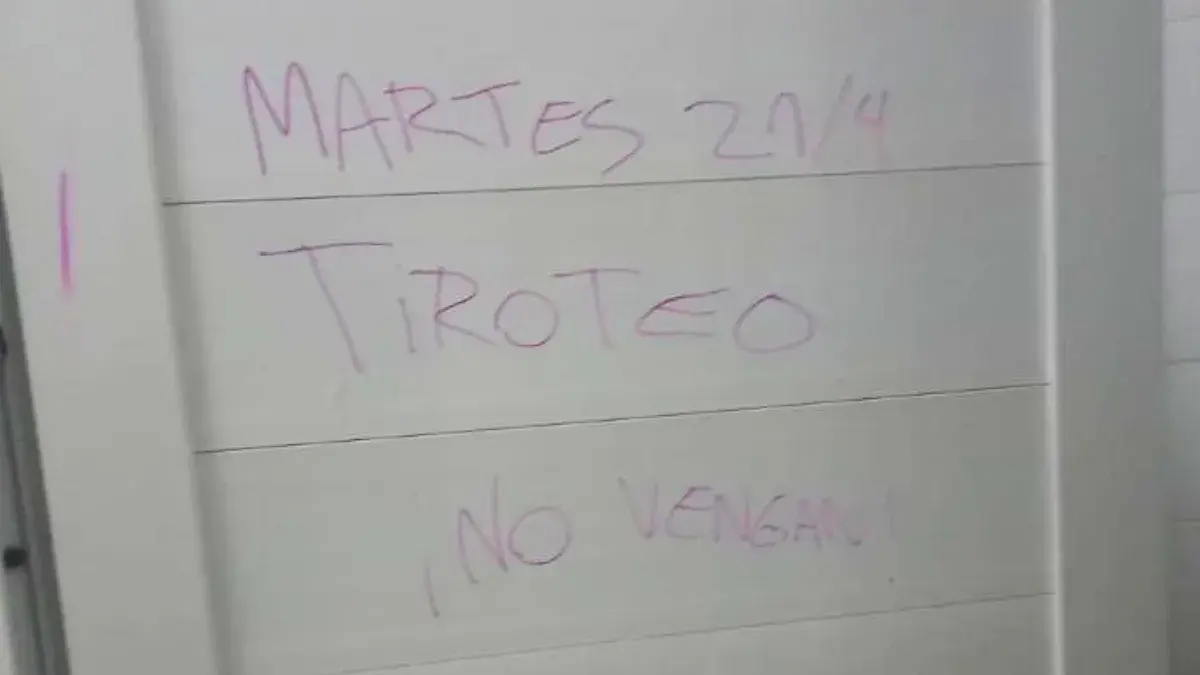 MARTES 21/4
TIROTEO
¡NO VENGAN!